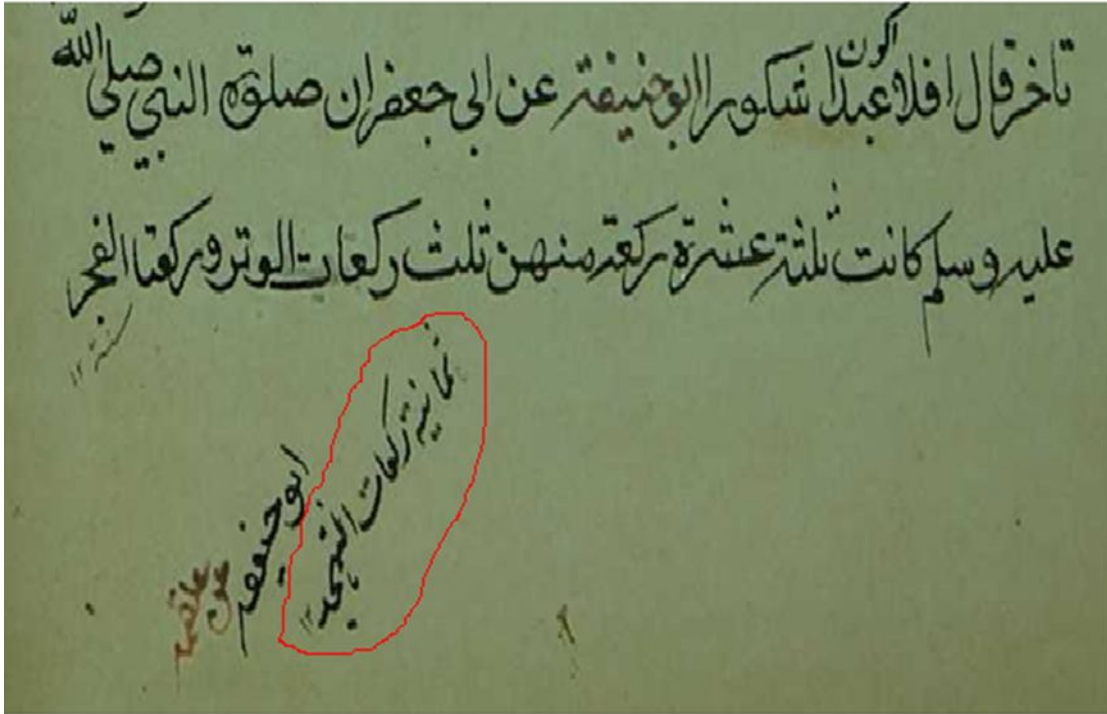 تاخر قال افلا اكون عبدا شكورا ابو حنيفة عن ابي جعفر ان صلوة النبي صلي الله
عليه وسلم كانت ثلثة عشرة ركعة منهن ثلث ركعات الوتر وركعتا الفجر
سنة ١٢
ثمانية ركعات التهجد ١٢
ابو حنيفة
عن